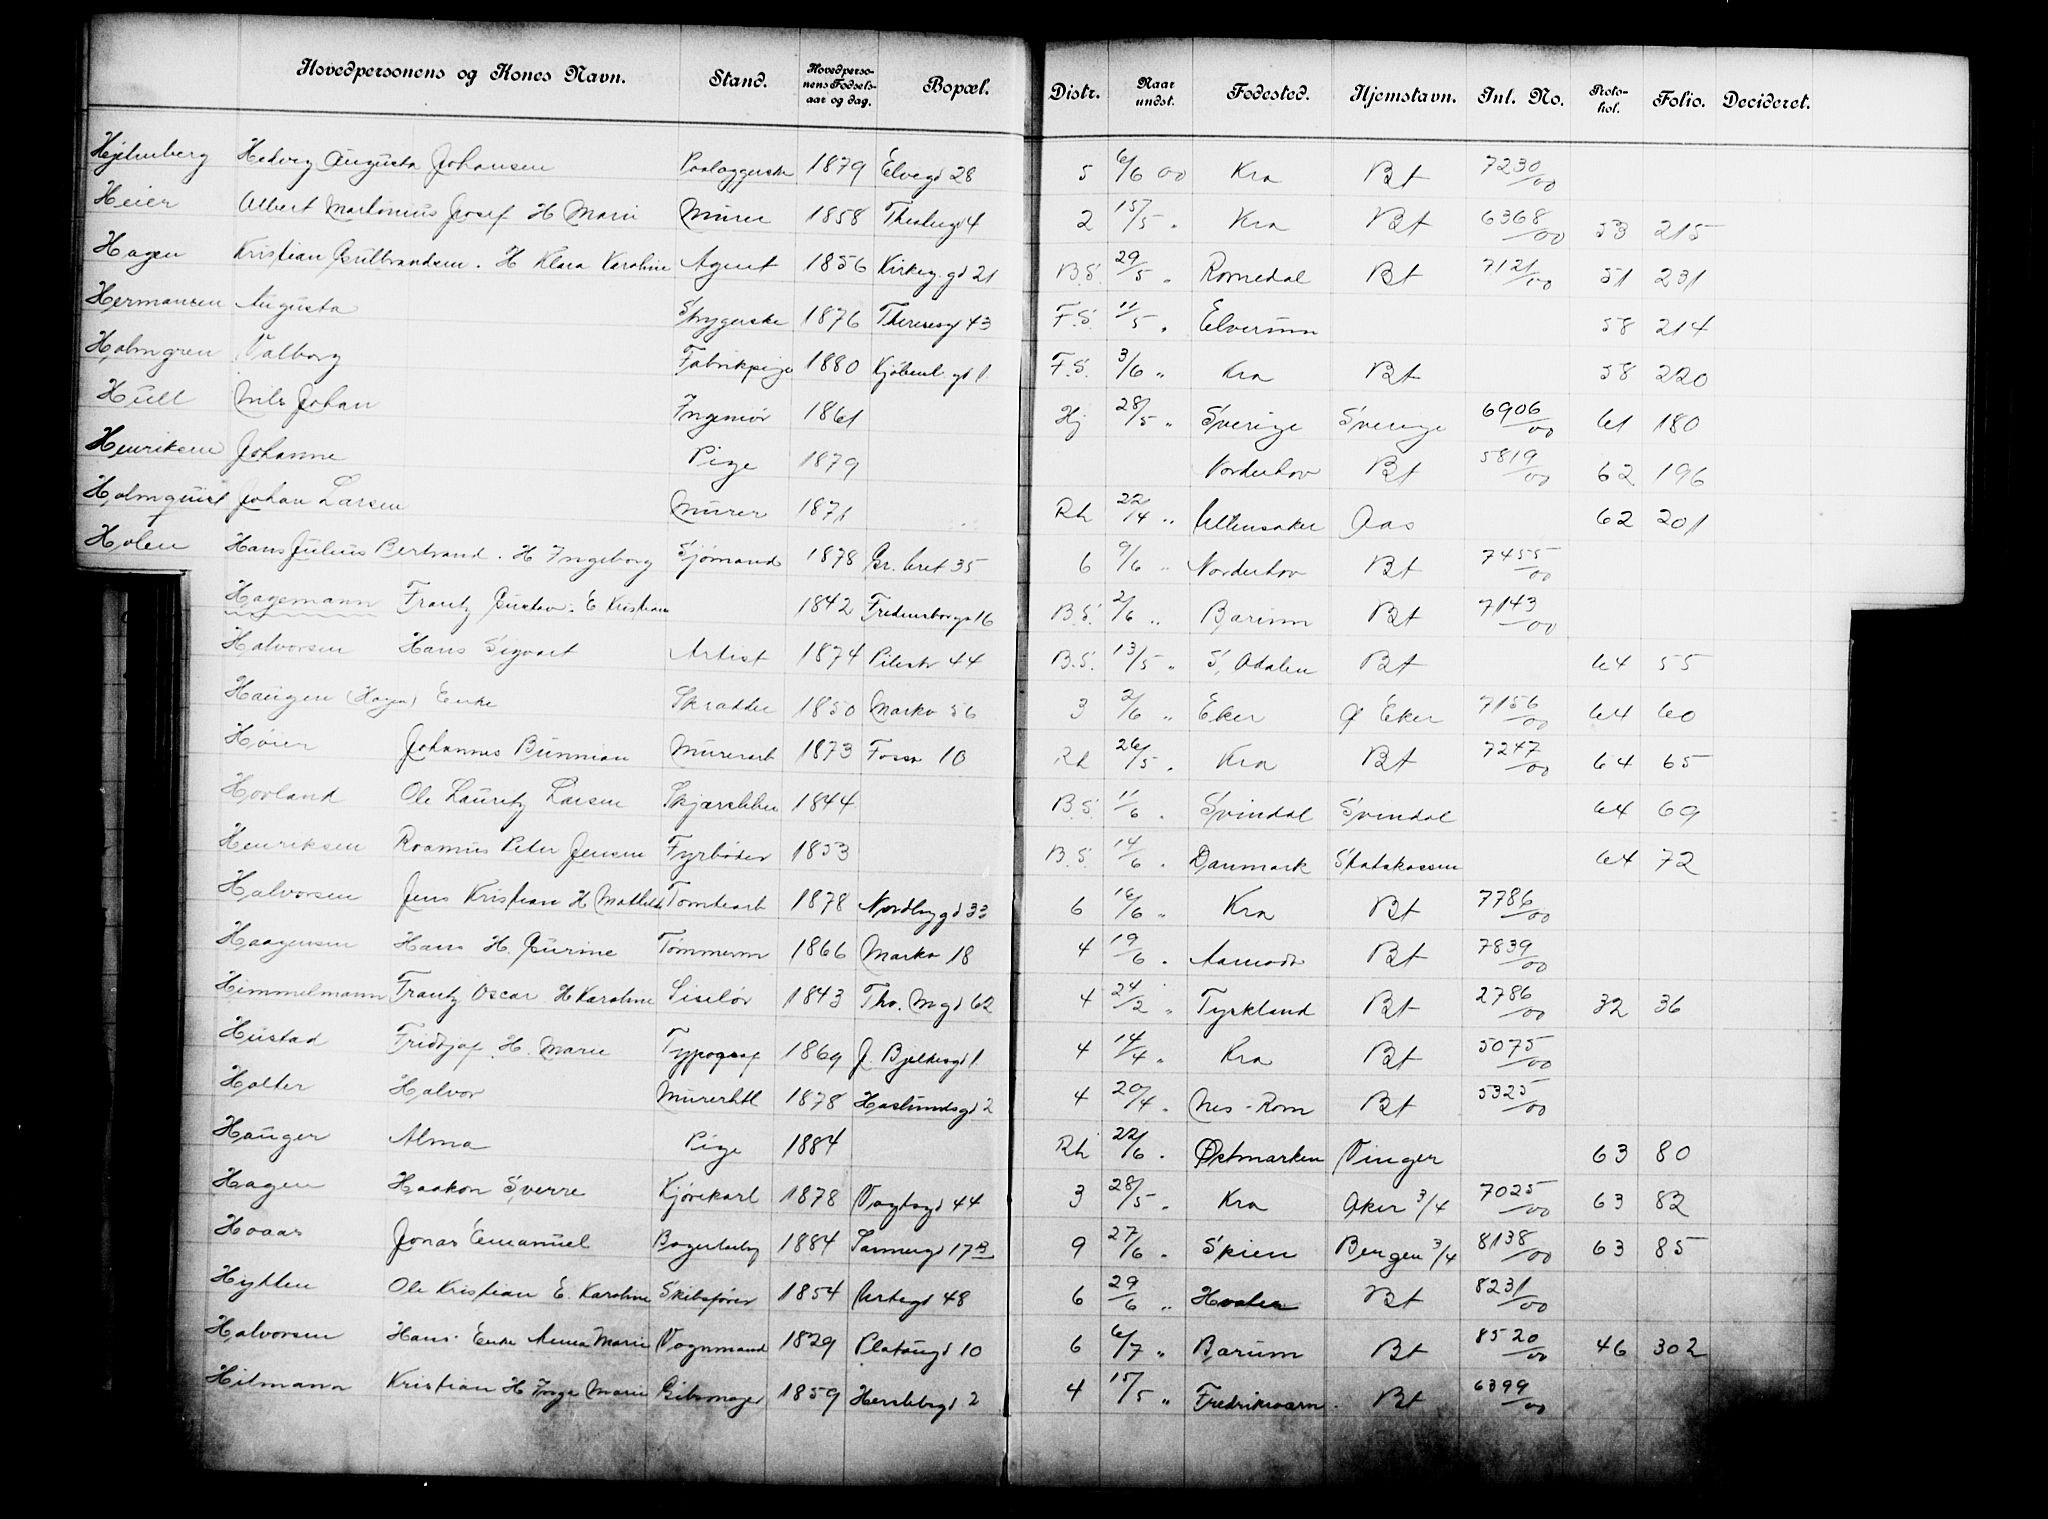 Hovedpersonens og Kones Navn. Stand. Hovedperso-nens Fødsels-aar og dag. Bopæl. Distr. Naar undst. Fødested. Hjemstavn. Inl. No. Proto-kol. Folio. Decideret.
Hjelmberg Hedvig Augusta Johansen 1879 Elvegd 28 5 6/6 00 Kra Bt 7230/00
Heier Albert Martinius Josef H Marie Murer 1858 Theatergd 4 2 15/5 " Kra Bt 6368/00 53 215
Hagen Kristian Gulbrandsen. H Klara Karoline Agent 1856 Kirkeg. gd 21 B.S. 29/5 " Romedal Bt 7121/00 51 231
Hermansen Augusta Strygerske 1876 Theresesgd 43 F.S. 11/5 " Elverum 58 214
Holmgren Valborg Fabrikpige 1880 Kjøbenh. gd 1 F.S. 3/6 " Kra Bt 58 220
Hull Nils Johan Ingeniør 1861 Hj 28/5 " Sverige Sverige 6906/00 61 180
Henriksen Johanne Pige 1879 Norderhov Bt 5819/00 62 196
Holmquist Johan Larsen Murer 1871 Rh 22/4 " Ullensaker Aas 62 201
Holen Hans Julius Bertrand. H Ingeborg Sjømand 1878 Gr. leret 35 6 9/6 " Norderhov Bt 7455/00
Hagemann Frantz Gustav. E Kristiane 1842 Fredensborgv 16 B.S. 2/6 " Bærum Bt 7143/00
Halvorsen Hans Sigvart Artist 1874 Pilestr 44 B.S. 13/5 " S. Odalen Bt 64 55
Haugen (Hagen) Enke Skrædder 1850 Markv 56 3 2/6 " Eker Ø Eker 7156/00 64 60
Høier Johannes Bunnian Murerarb 1873 Fossv 10 Rh 26/5 " Kra Bt 7247/00 64 65
Hovland Ole Lauritz Larsen Skjærsliber 1844 B.S. 11/6 " Svindal Svindal 64 69
Henriksen Rasmus Peter Jensen Fyrbøder 1853 B.S. 14/6 " Danmark Statskassen 64 72
Halvorsen Jens Kristian H Mathilde Tomtearb 1878 Nordbygd 33 6 16/6 " Kra Bt 7786/00
Haagensen Hans H. Gurine Tømmerm 1866 Markv 18 4 19/6 " Aamodt Bt 7839/00
Himmelmann Frantz Oscar H Karoline Siselør 1843 Tho. Mgd 62 4 24/2 " Tyskland Bt 2786/00 32 36
Hustad Fridtjof. H. Marie Typograf 1869 J. Bjelkesgd 1 4 14/4 " Kra Bt 5075/00
Holter Halvor 1878 Haslumdsgd 2 4 20/4 " Nes - Rom Bt 5325/00
Hauger Alma Pige 1884 Rh 22/6 " Østmarken Vinger 63 80
Hagen Haakon Sverre Kjørekarl 1878 Vogtsgd 44 3 28/5 " Kra Aker 3/4 7025/00 63 82
Hoaas Jonas Emanuel 1884 Sannergd 17B 9 27/6 " Skien Bergen 3/4 8138/00 63 85
Hytten Ole Kristian E. Karoline Skibsfører 1854 Urtegd 48 6 29/6 " Hvaler Bt 8231/00
Halvorsen Hans. Enke Anna Marie Vognmand 1829 Platougd 10 6 6/7 " Bærum Bt 8520/00 46 302
Hilmann Kristian H Inga Marie 1859 Herslebsgd 2 4 15/5 " Fredriksværn Bt 6399/00